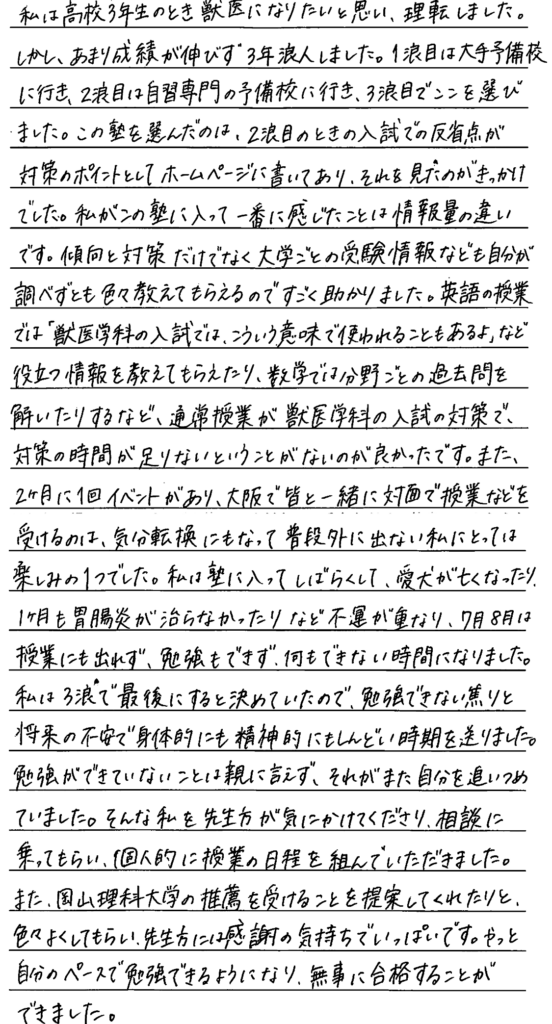 私は高校3年生のとき獣医になりたいと思い、理転しました。
しかし、あまり成績が伸びず3年浪人しました。1浪目は大手予備校
に行き、2浪目は自習専門の予備校に行き、3浪目でここを選び
ました。この塾を選んだのは、2浪目のときの入試での反省点が
対策のポイントとしてホームページに書いてあり、それを見たのがきっかけ
でした。私がこの塾に入って一番に感じたことは情報量の違い
です。傾向と対策だけでなく大学ごとの受験情報なども自分が
調べずとも色々教えてもらえるのですごく助かりました。英語の授業
では「獣医学科の入試では、こういう意味で使われることもあるよ」など
役立つ情報を教えてもらえたり、数学では分野ごとの過去問を
解いたりするなど、通常授業が獣医学科の入試の対策で、
対策の時間が足りないということがないのが良かったです。また、
2ヶ月に1回イベントがあり、大阪で皆と一緒に対面で授業などを
受けるのは、気分転換にもなって普段外に出ない私にとっては
楽しみの1つでした。私は塾に入ってしばらくして、愛犬が亡くなったり、
1ヶ月も胃腸炎が治らなかったりなど不運が重なり、7月8月は
授業にも出れず、勉強もできず、何もできない時間になりました。
私は3浪で最後にすると決めていたので、勉強できない焦りと
将来の不安で身体的にも精神的にもしんどい時期を送りました。
勉強ができていないことは親に言えず、それがまた自分を追いつめ
ていました。そんな私を先生方が気にかけてくださり、相談に
乗ってもらい、個人的に授業の日程を組んでいただきました。
また、岡山理科大学の推薦を受けることを提案してくれたりと、
色々よくしてもらい、先生方には感謝の気持ちでいっぱいです。やっと
自分のペースで勉強できるようになり、無事に合格することが
できました。